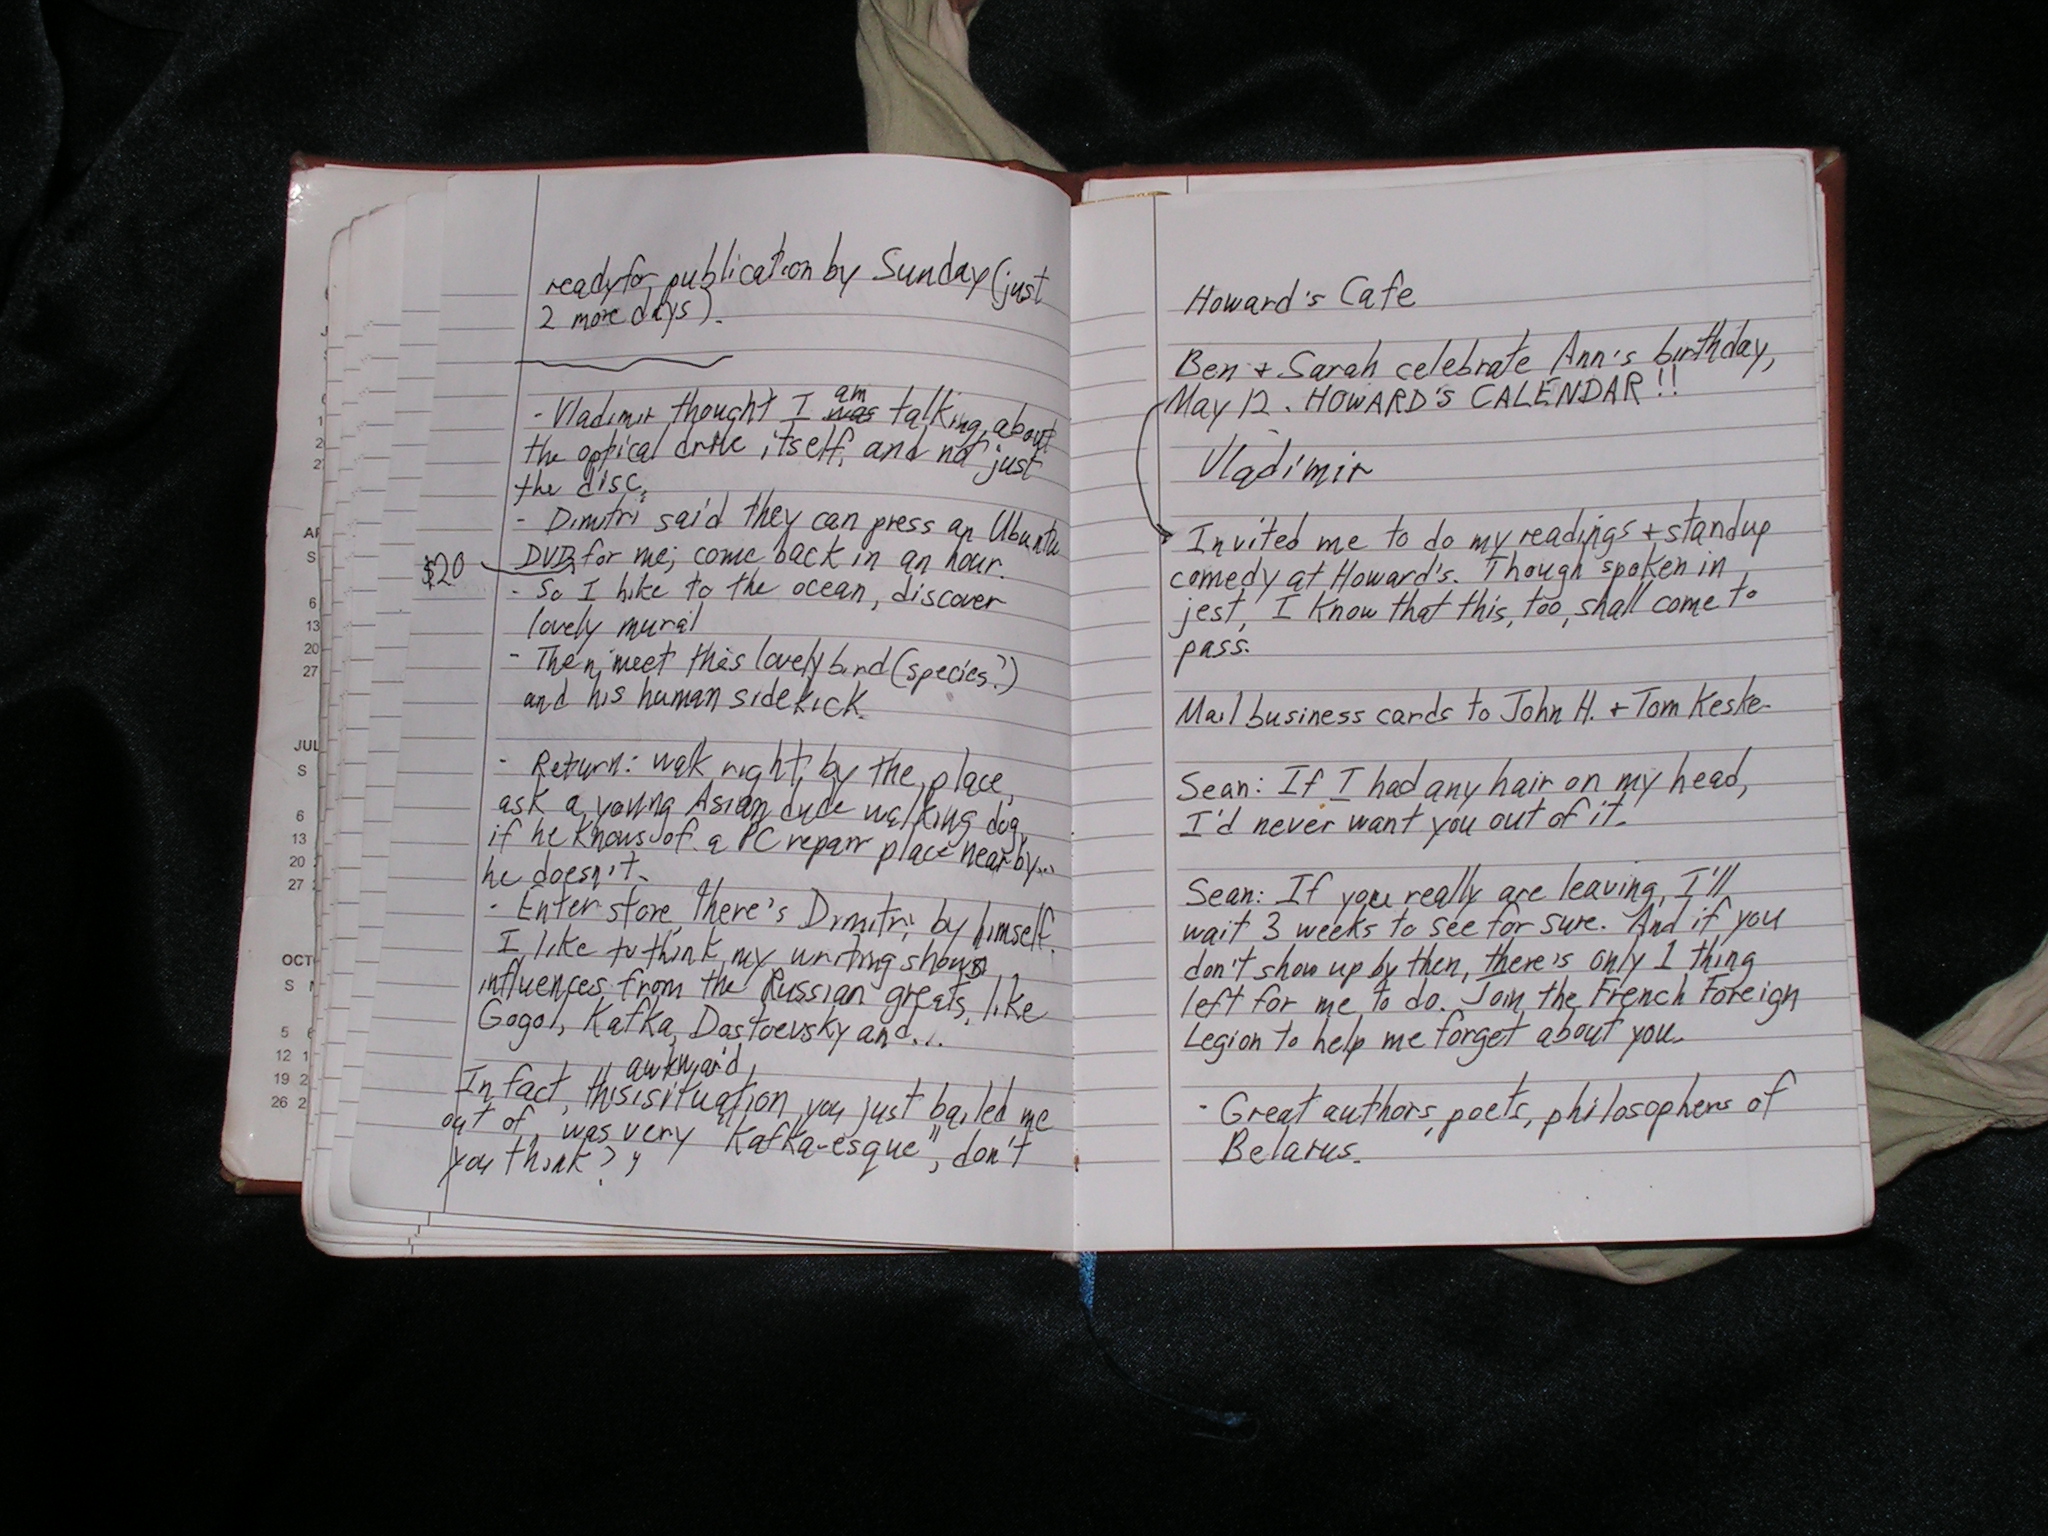 ready for publication by Sunday (just
2 more days).
- Vladimir thought I was am talking about
the optical drive itself, and not just
the disc.
- Dimitri said they can press an Ubuntu
$20 DVD for me; come back in an hour.
- So I hike to the ocean, discover
lovely mural
- Then, meet this lovely bird (species?)
and his human sidekick.
- Return: walk right by the place,
ask a young Asian dude walking dog,
if he knows of a PC repair place nearby...
he doesn't.
- Enter store, there's Dimitri, by himself.
I like to think my writing shows
influences from the Russian greats, like
Gogol, Kafka, Dostoevsky and...
awkward
In fact, this situation you just bailed me
out of, was very "Kafka-esque", don't
you think?
Howard's Cafe
Ben + Sarah celebrate Ann's birthday,
May 12. HOWARD'S CALENDAR!!
Vladimir
Invited me to do my readings + standup
comedy at Howard's. Though spoken in
jest, I know that this, too, shall come to
pass.
Mail business cards to John H. + Tom Keske.
Sean: If I had any hair on my head,
I'd never want you out of it.
Sean: If you really are leaving, I'll
wait 3 weeks to see for sure. And if you
don't show up by then, there's only 1 thing
left for me to do. Join the French Foreign
Legion to help me forget about you.
- Great authors, poets, philosophers of
Belarus.
S
6
13
20
27
JUL
S
6
13
20
27
OCT
S
5
12
19
26